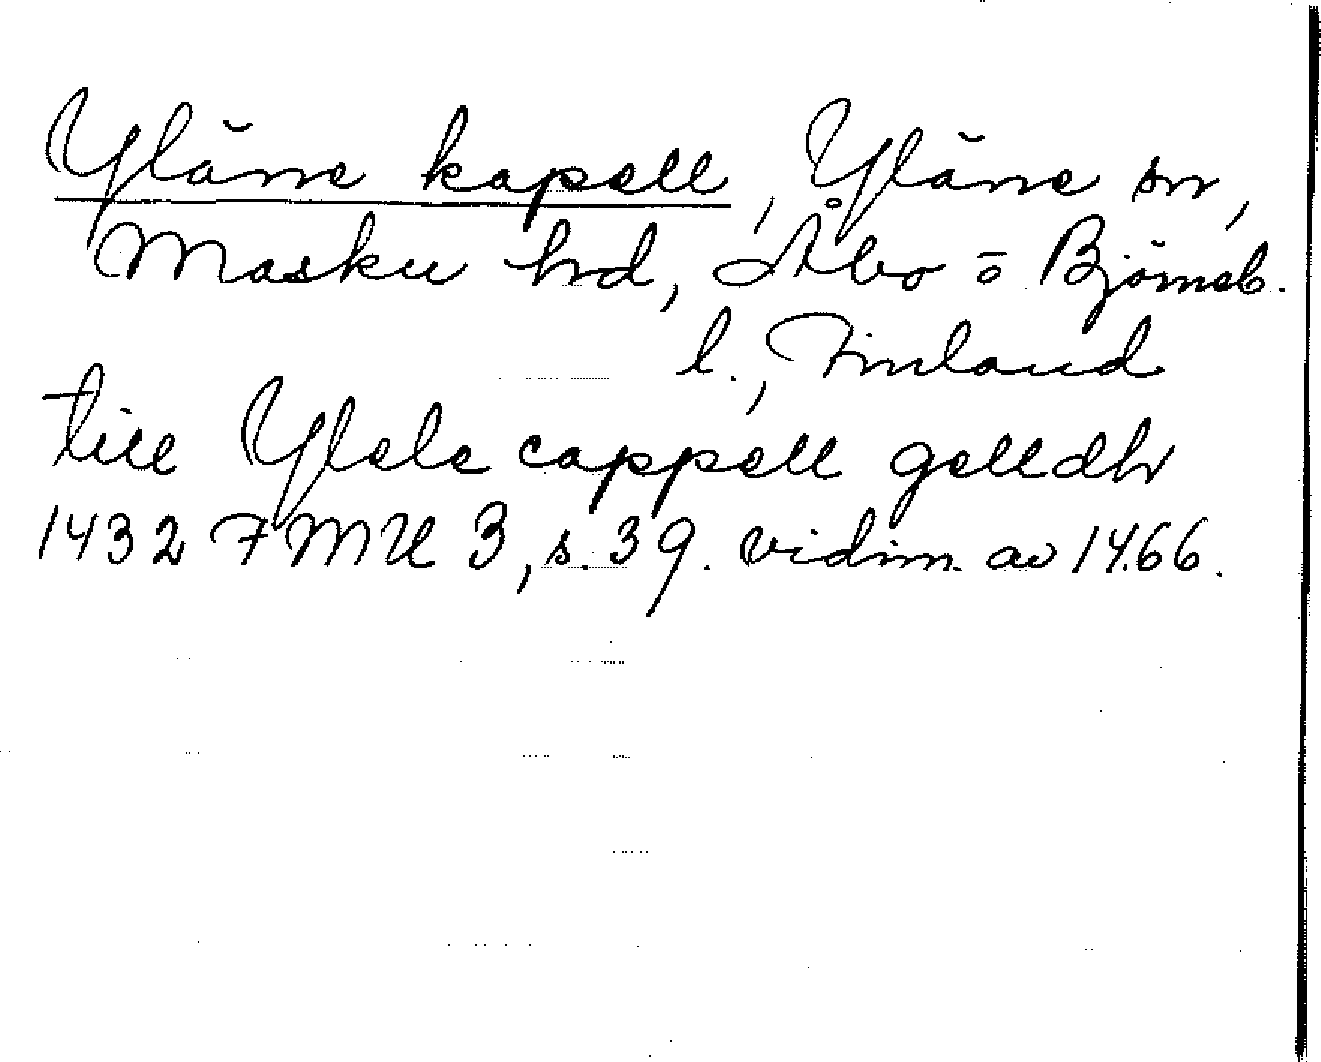 Yläne kapell, Yläne sn,
Masku hd, Åbo o Björneb.
l., Finland
till Ylele cappell gelldhr
1432 FMU 3, s. 39. vidim. av 1466.